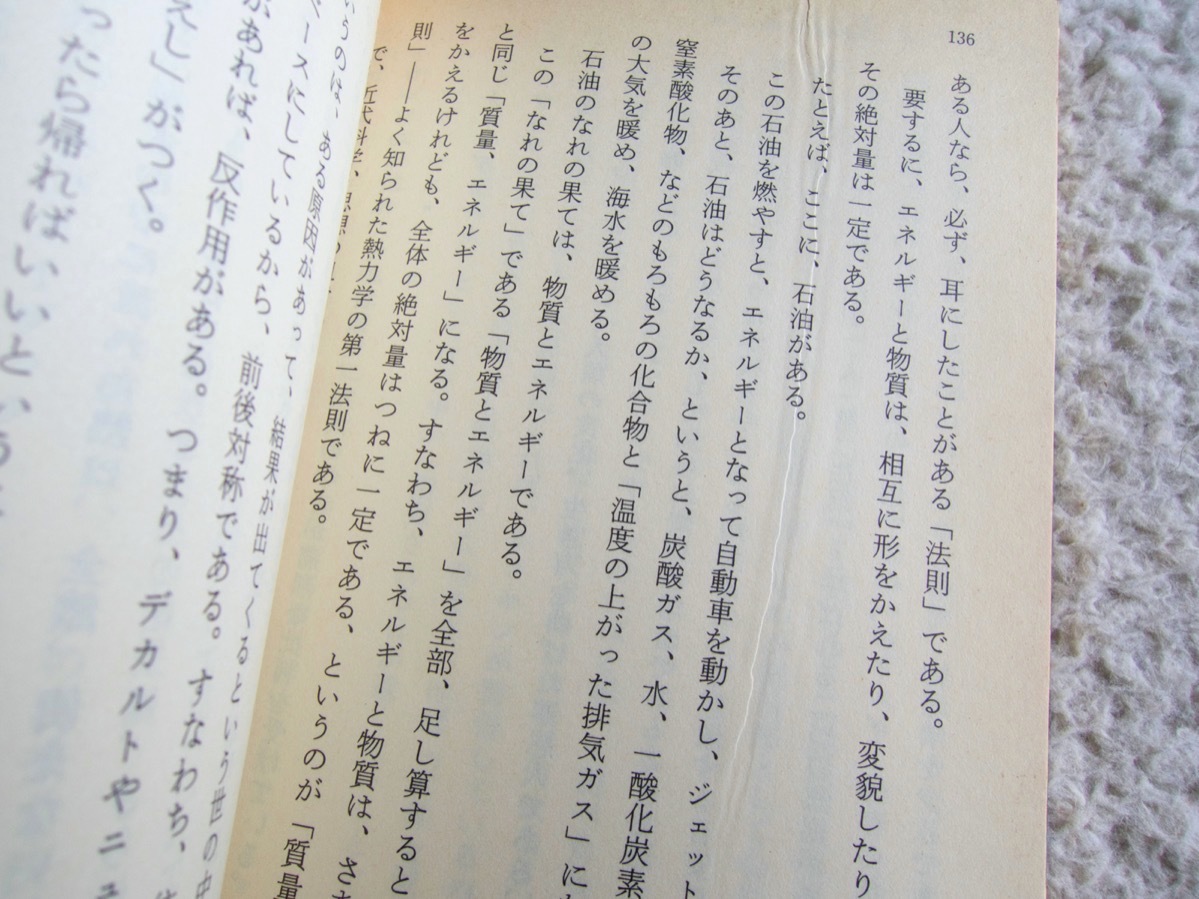 136
ある人なら、必ず、耳にしたことがある「法則」である。
要するに、エネルギーと物質は、相互に形をかえたり、変貌したり
その絶対量は一定である。
たとえば、ここに、石油がある。
この石油を燃やすと、エネルギーとなって自動車を動かし、ジェット
そのあと、石油はどうなるか、というと、炭酸ガス、水、一酸化炭素
窒素酸化物、などのもろもろの化合物と「温度の上がった排気ガス」に
の大気を暖め、海水を暖める。
石油のなれの果ては、物質とエネルギーである。
この「なれの果て」である「物質とエネルギー」を全部、足し算すると
と同じ「質量、エネルギー」になる。すなわち、エネルギーと物質は、さま
をかえるけれども、全体の絶対量はつねに一定である、というのが「質量
則」――よく知られた熱力学の第一法則である。
で、近代科学、思想の
いうのは、ある原因があって、結果が出てくるという世の中
ベースにしているから、前後対称である。すなわち、
があれば、反作用がある。つまり、デカルトやニュ
えし」がつく。
ったら帰ればいいという